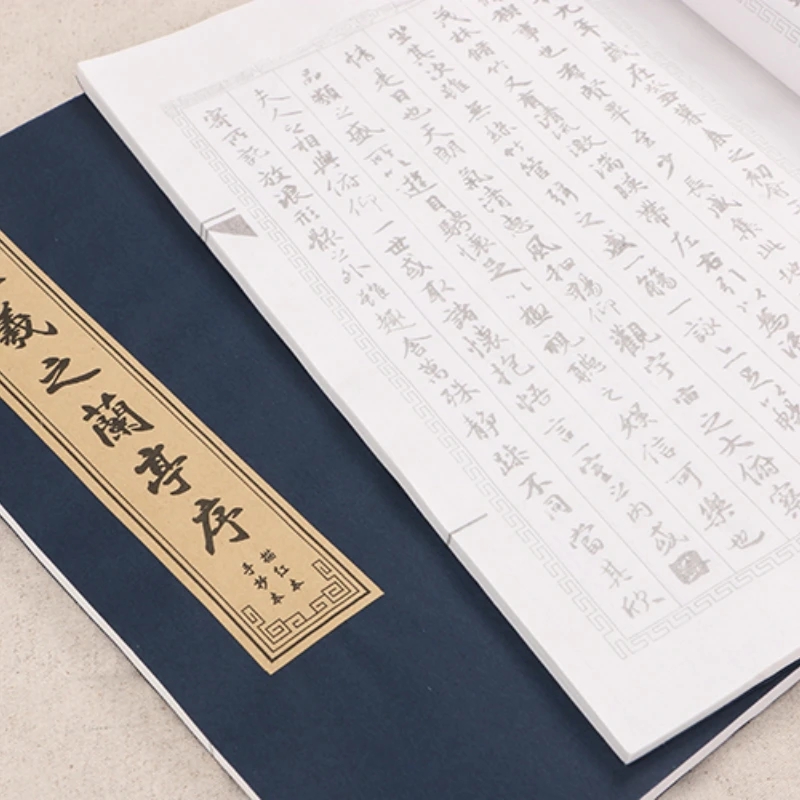 羲之蘭亭序
描红本
手抄本
九年歲在癸丑暮春之初會
稧事也羣賢畢至少長咸集此地
茂林脩竹又有清流激湍映帶左右引以為流
坐其次雖無絲竹管絃之盛一觴一詠亦足以暢
情是日也天朗氣清惠風和暢仰觀宇宙之大俯察
品類之盛所以遊目騁懷足以極視聽之娛信可樂也
夫人之相與俯仰一世或取諸懷抱悟言一室之內或
寄所託放浪形骸之外雖趣舍萬殊靜躁不同當其欣